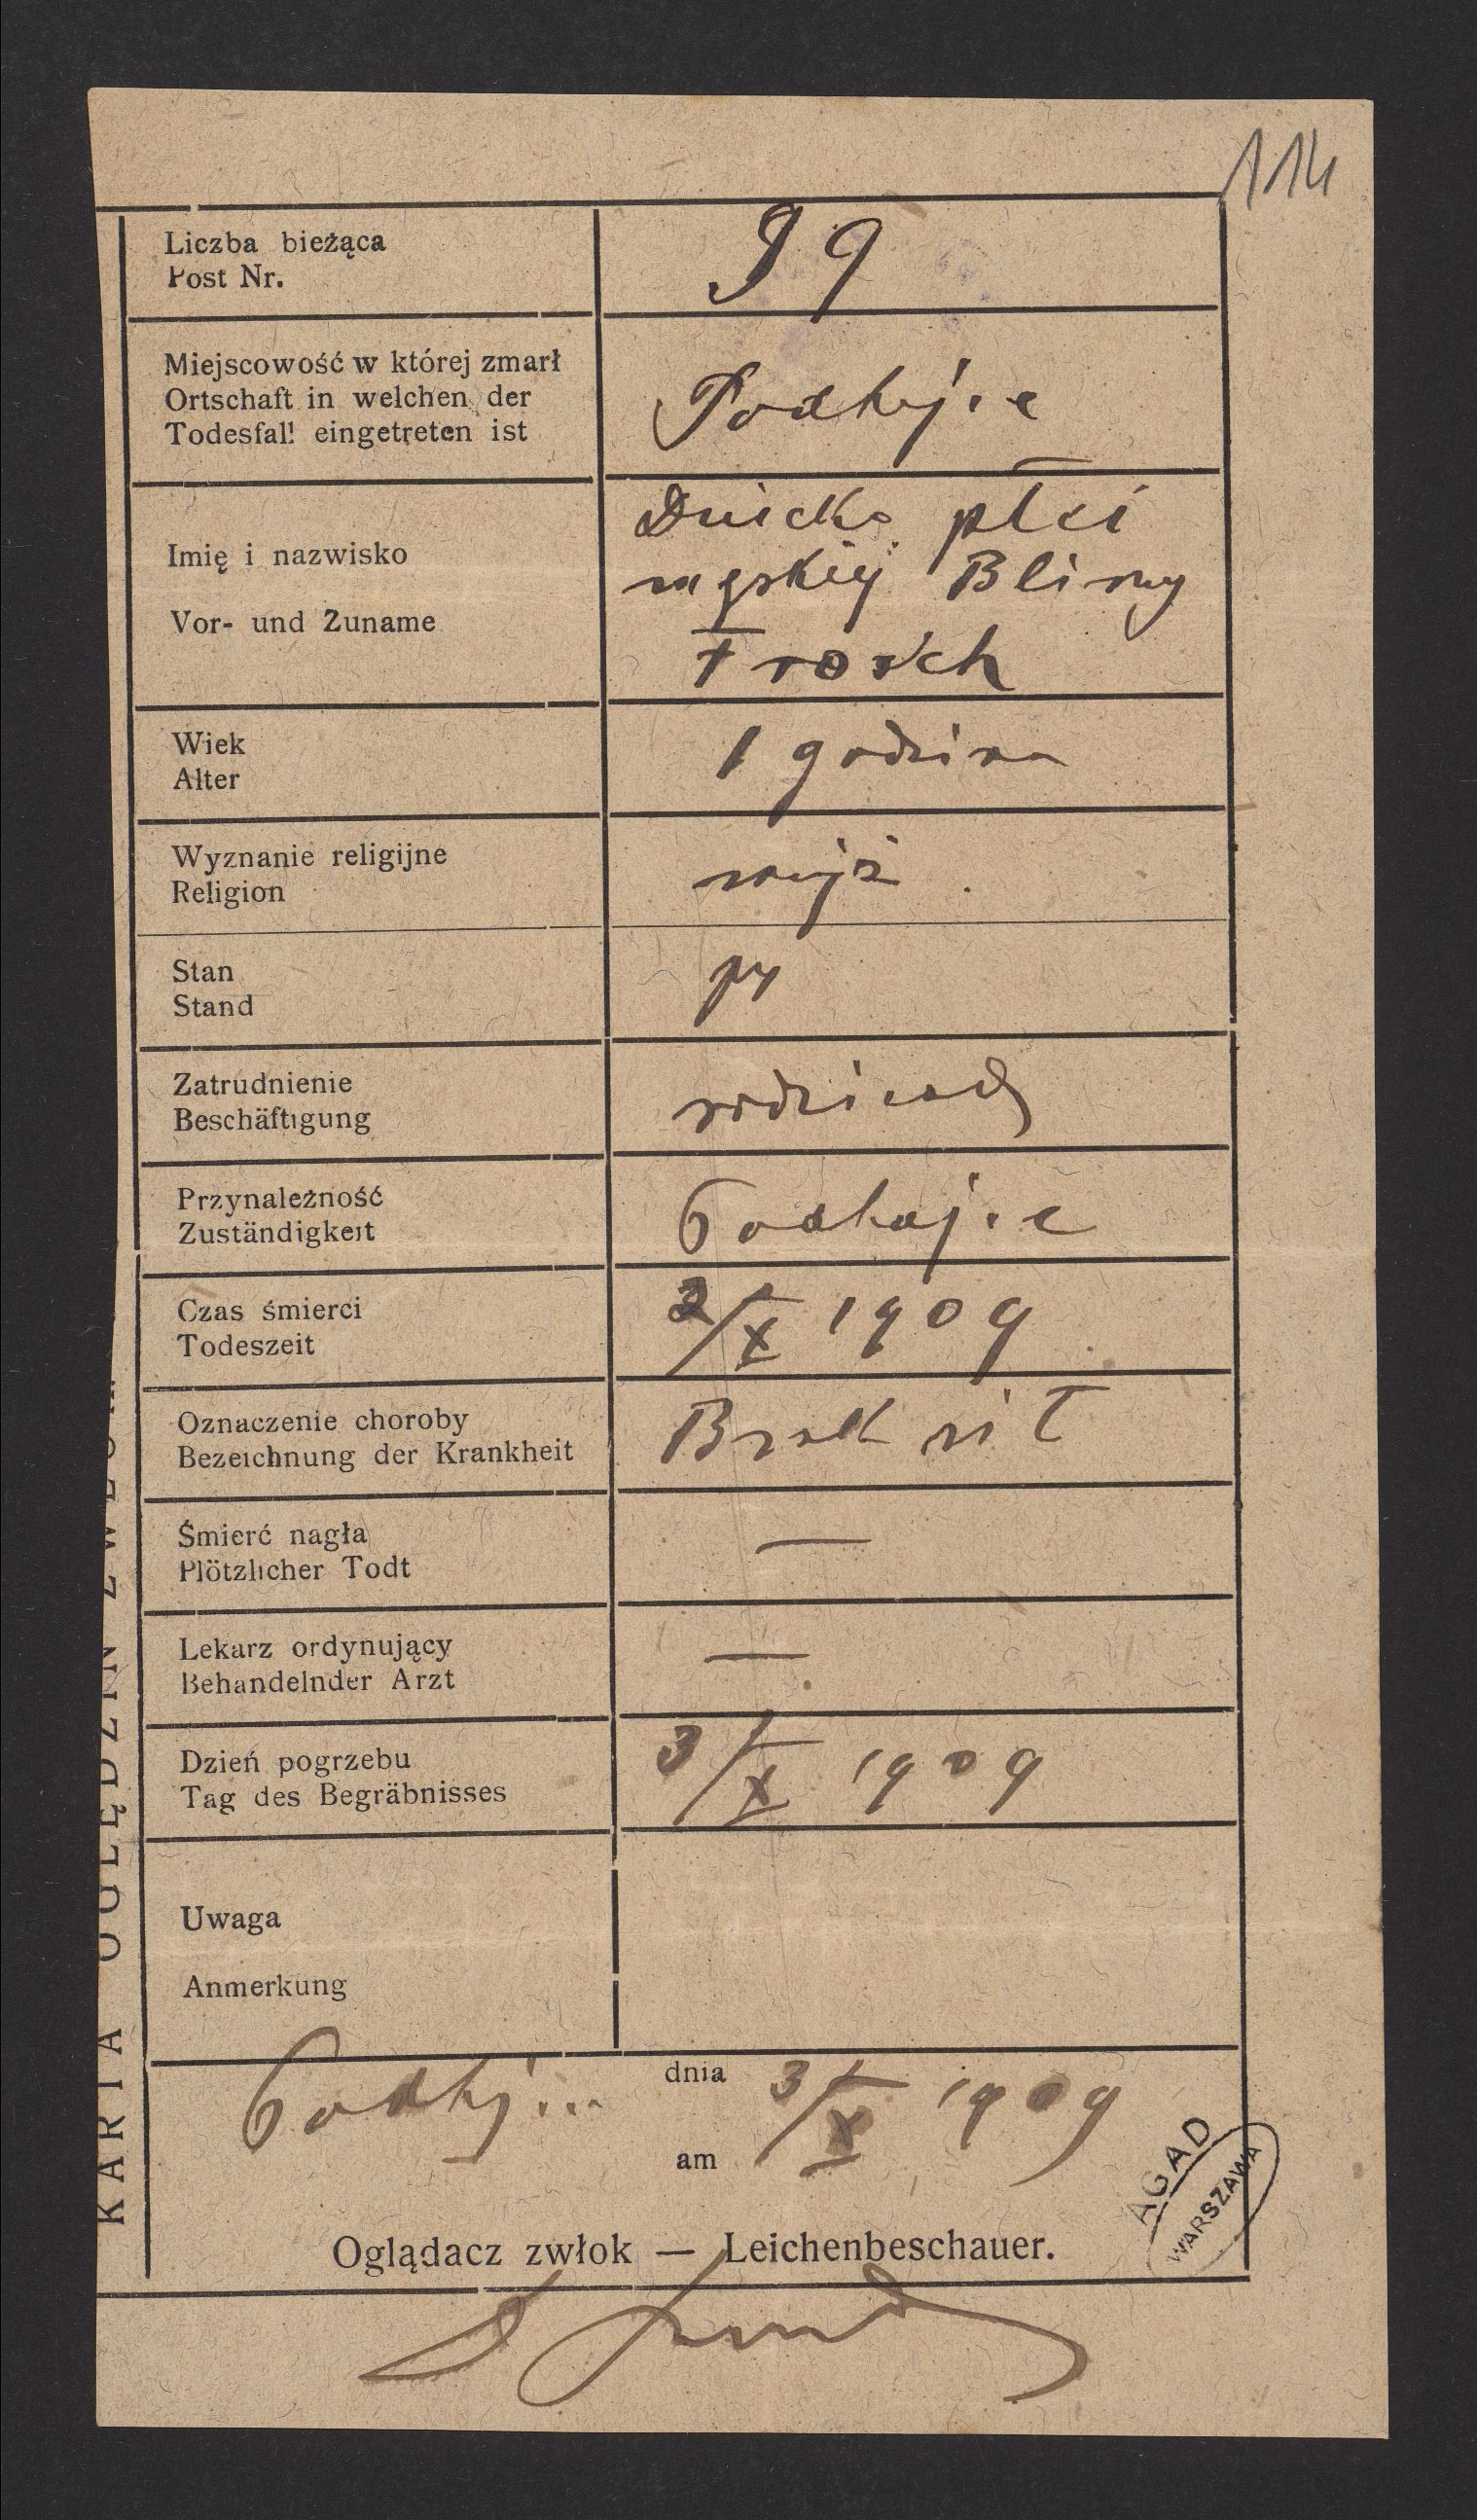 114
Liczba bieżąca
Post Nr.
99
Miejscowość w której zmarł
Ortschaft in welchen der
Todesfall eingetreten ist
Podhajce
Imię i nazwisko
Vor- und Zuname
Dziecko płci
męskiej Bliny
Frosch
Wiek
Alter
1 godzina
Wyznanie religijne
Religion
mojż
Stan
Stand
py
Zatrudnienie
Beschäftigung
rodzicach
Przynależność
Zuständigkeit
Podhajce
Czas śmierci
Todeszeit
2/X 1909
Oznaczenie choroby
Bezeichnung der Krankheit
Brak sił
Śmierć nagła
Plötzlicher Todt
—
Lekarz ordynujący
Behandelnder Arzt
—
Dzień pogrzebu
Tag des Begräbnisses
3/X 1909
Uwaga
Anmerkung
Podhajce
dnia
am
3/X 1909
Oglądacz zwłok — Leichenbeschauer.
KARTA OGLĘDZIN ZWŁOK
AGAD
WARSZAWA